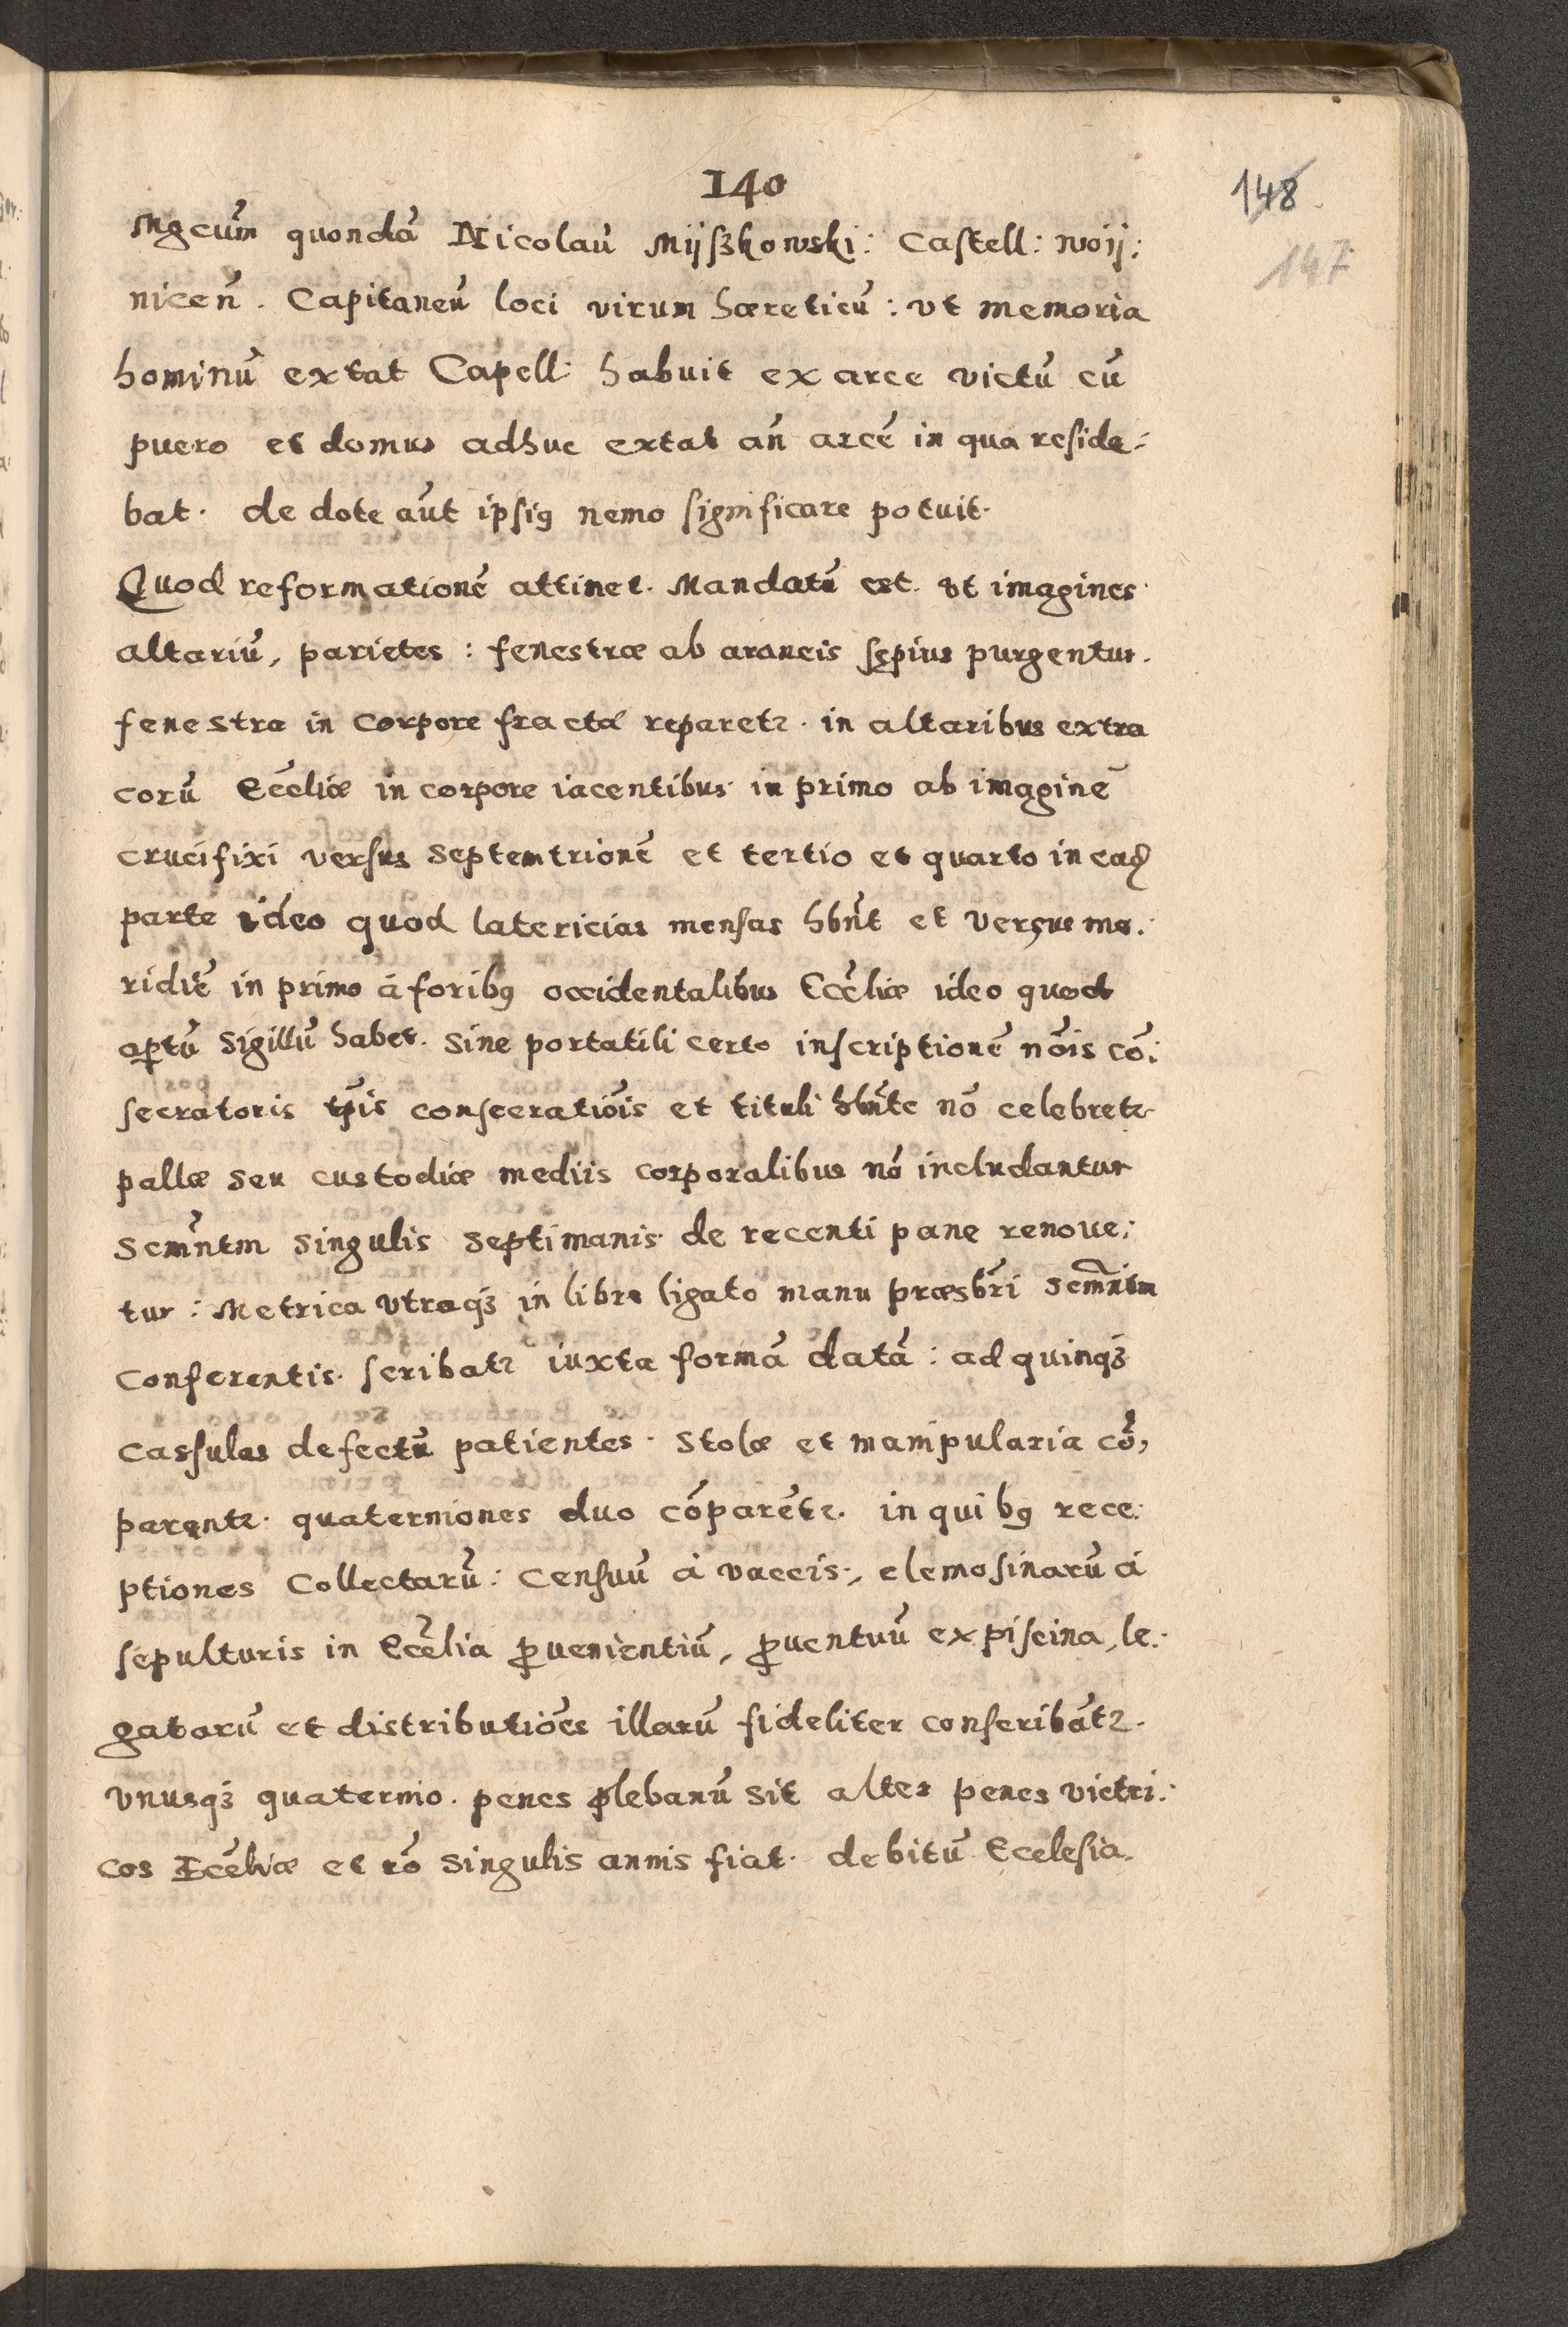 140
148
147
Mgcūm quondā Nicolaū Mijſzkowski: Castell: woij:
niceñ. Capitaneū loci virum hæreticū: vt memoria
hominū extat Capell: habuit ex arce victū cū
puero et domus adhuc extat an̄ arcē in qua reside:
bat. de dote aūt ipsiꝯ nemo significare potuit.
Quod reformationē attinet. Mandatū est. vt imagines
altariū, parietes: fenestræ ab araneis sępius purgentur.
fenestra in corpore fracta reparetꝛ. in altaribus extra
corū Eccłiæ in corpore iacentibus in primo ab imaginē
crucifixi versus septemtrionē et tertio et quarto in ead
parte ideo quod latericias mensas hbn̄t et versus me:
ridiē in primo à foribꝯ occidentalibus Eccłiæ ideo quod
aꝑtū sigillū habet. Sine portatili certo inscriptionē nōis cō:
secratoris tp̄is consecratiōis et tituli hbn̄te nō celebretꝛ
pallæ seu custodiæ mediis corporalibus nō includantur
Scm̄ntm singulis septimanis de recenti pane renoue:
tur: Metrica vtraqꝫ in libro ligato manu præsbr̄i scm̄ntm
conferentis. scribatꝛ iuxta formā datā: ad quinqꝫ
cassulas defectū patientes. Stolæ et manipularia cō,
parentꝛ. quaterniones duo cōparētꝛ. in quibꝯ rece:
ptiones Collectarū: Censuū à vaccis, elemosinarū à
sepulturis in Eccłia ꝓuenientiū, ꝓuentuū ex piscina, le:
gatorū et distributiōes illarū fideliter conscribātꝛ.
vnusqꝫ quaternio. penes plebanū sit alter penes vietri:
cos Eccłiæ et rō singulis annis fiat. debitū Ecclesia.